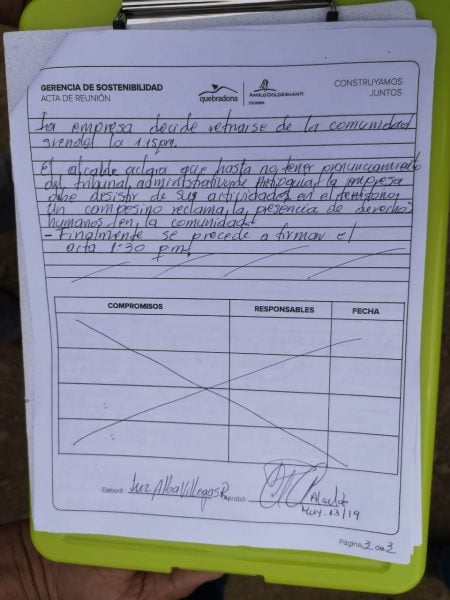 GERENCIA DE SOSTENIBILIDAD
ACTA DE REUNIÓN
quebradona
ANGLOGOLDASHANTI
COLOMBIA
CONSTRUYAMOS
JUNTOS
La empresa decide retirarse de la comunidad
siendo la 1:15pm.
El alcalde aclara que hasta no tener pronunciamiento
del tribunal administrativo de Antioquia, la empresa
debe desistir de sus actividades en el territorio,
Un campesino reclama la presencia de derechos
humanos en la comunidad.
- Finalmente se procede a firmar el
acta 1:30 pm
COMPROMISOS RESPONSABLES FECHA
Elaboró: Luz Alba Villegas R. Aprobó:
Alcalde
May. 13/19
Página 3 de 3